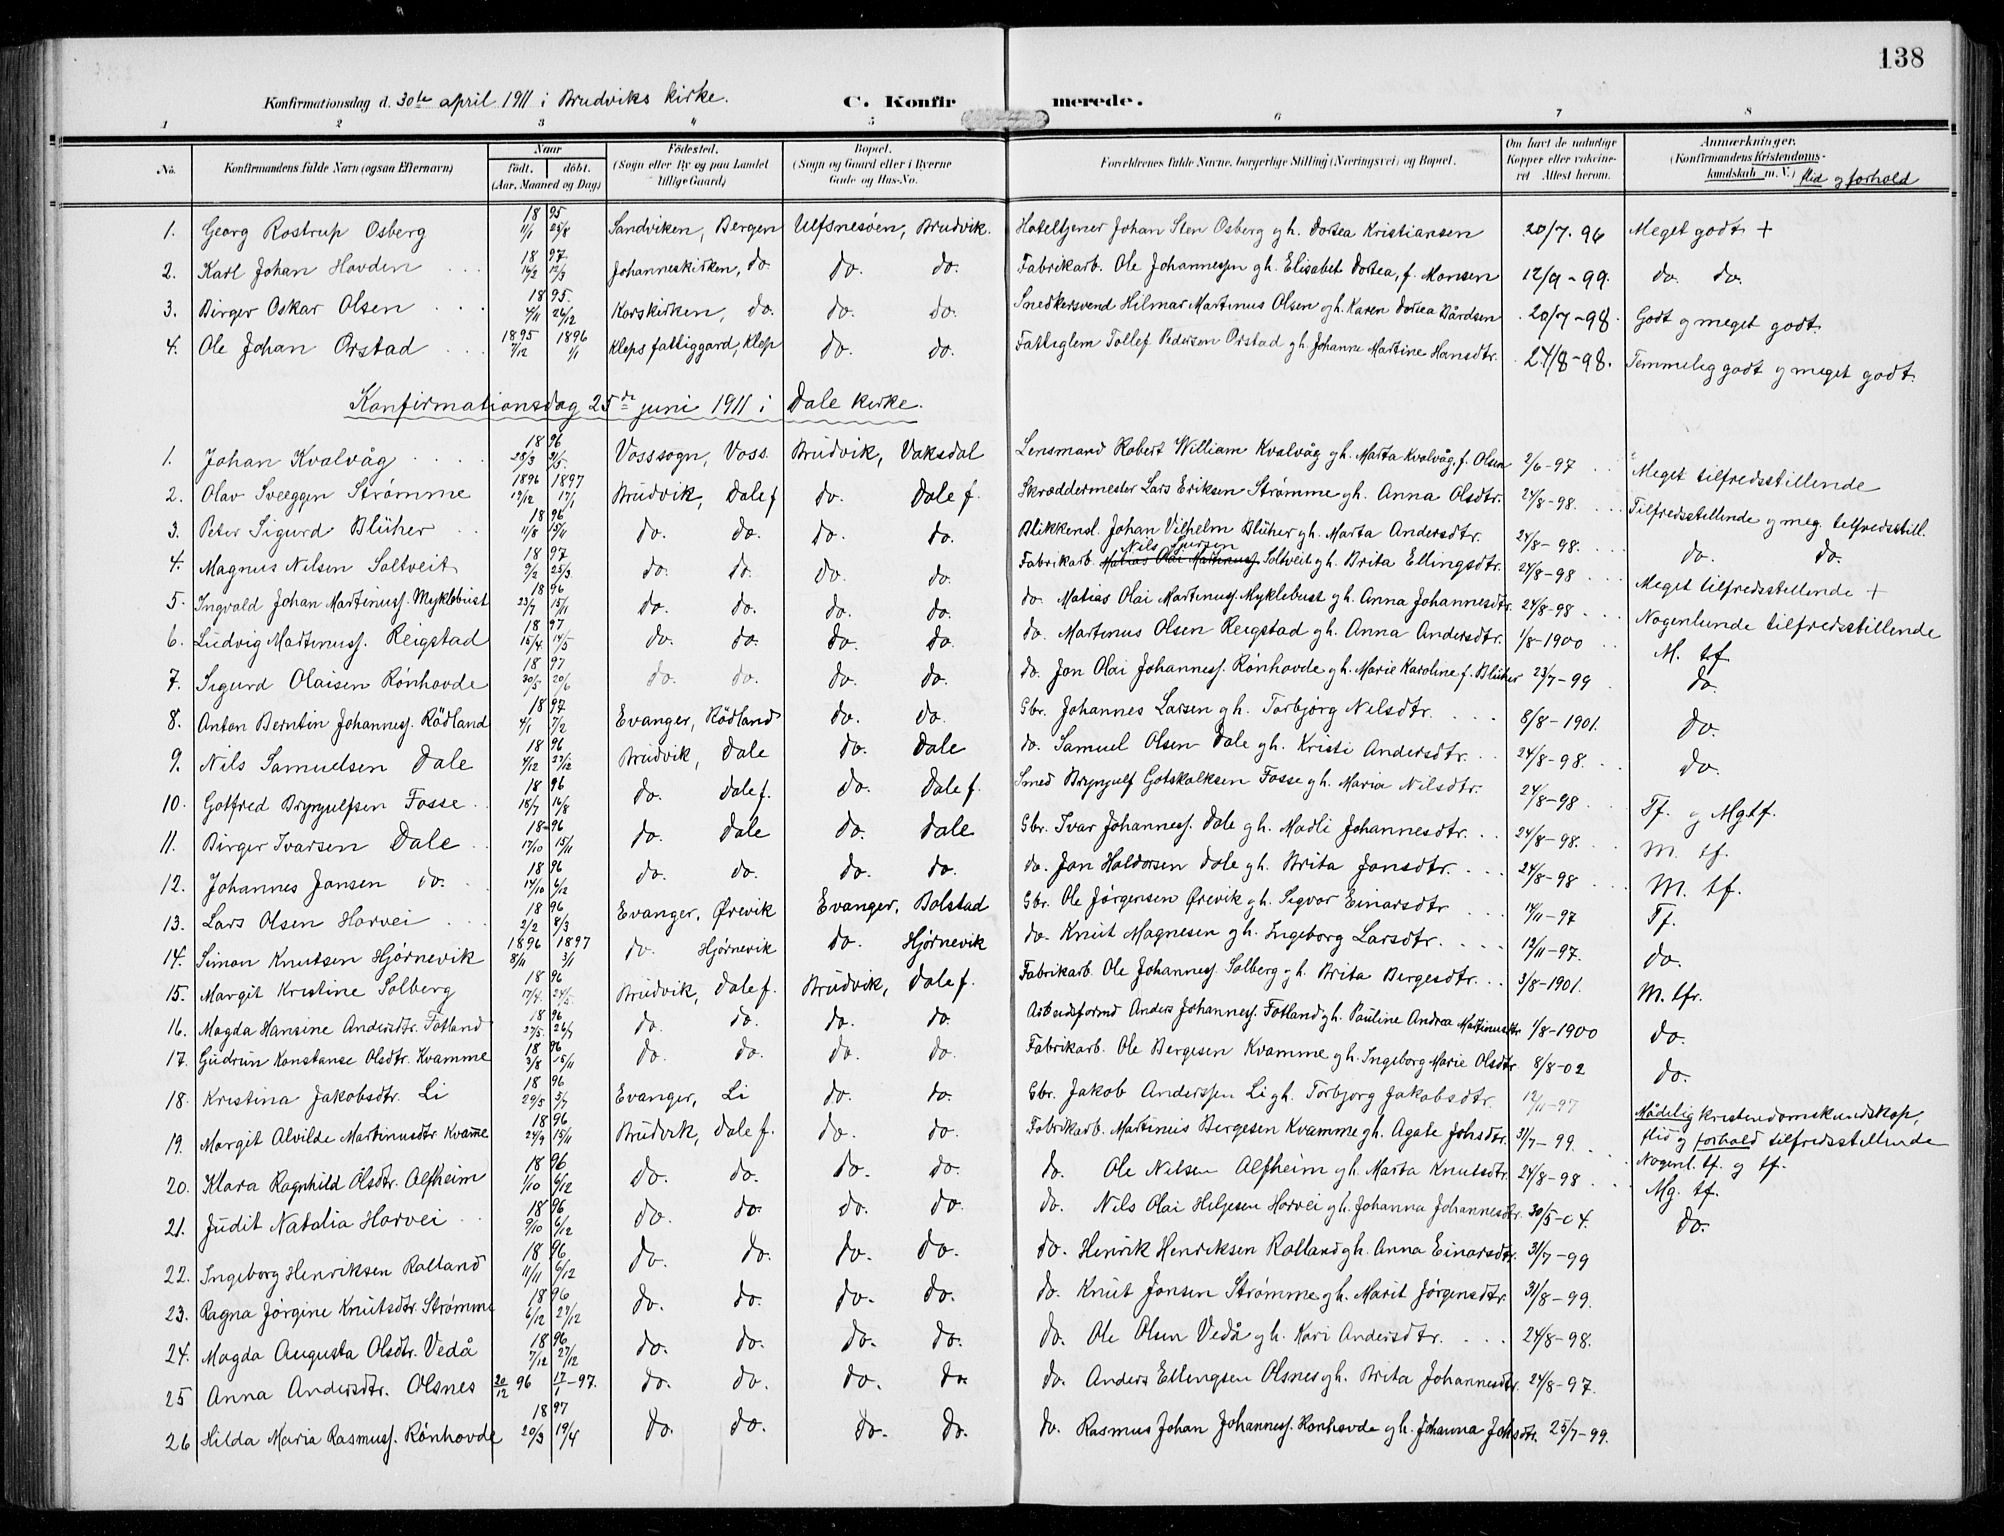 138
Konfirmationsdag d. 30te april 1911 i Brudviks kirke. C. Konfirmerede.
1 2 3 4 5 6 7 8
No. Konfirmandens fulde Navn (ogsaa Efternavn) Naar født. døbt. (Aar, Maaned og Dag) Fødested. (Sogn eller By og paa Landet tillige Gaard) Bopæl. (Sogn og Gaard eller i Byerne Gade og Hus-No. Forældrenes fulde Navne, borgerlige Stilling (Næringsvei) og Bopæl. Om havt de naturlige Kopper eller vakcineret Attest herom. Anmærkninger. (Konfirmandens Kristendomskundskab m. V.) flid og forhold
1. Georg Rostrup Osberg 1895 1/1 25/8 Sandviken, Bergen Ulfsnesøen, Brudvik. Hoteltjener Johan Sten Osberg gh. Dortea Kristiansen 20/7. 96 Meget godt +
2. Karl Johan Hovden 1897 16/2 12/3 Johanneskirken, do. do. do. Fabrikarb. Ole Johannessen gh. Elisabet Dortea, f. Monsen 12/9 - 99. do. do.
3. Birger Oskar Olsen 1895. 4/11 26/12 Korskirken, do. do. do. Snedkersvend Hilmar Martinus Olsen gh. Karen Dortea Bårdsen 20/7 - 98 Godt og meget godt
4. Ole Johan Orstad 1895 7/12 1896 1/1 Kleps fattiggard, Klep do. do. Fatteglem Tollef Pedersen Orstad gh. Johanne Martine Hansdtr. 27/8 - 98. Temmelig godt og meget godt.
Konfirmationsdag 25de juni 1911 i Dale kirke.
1. Johan Kvalvåg 1896 28/3 31/5. Vosssogn, Voss. Brudvik, Vaksdal Lensmand Robert William Kvalvåg gh. Marta Kvalvåg, f. Olsen 2/6 - 97 Meget tilfredsstillende
2. Olav Sveeggen Strømme 1896 19/12 1897 17/1 Brudvik, Dale f do. Dale f. Skræddermester Lars Eriksen Strømme gh. Anna Olsdtr. 24/8 - 98. Tilfredsstillende og meg. tilfredsstill.
3. Peter Sigurd Blüher 1896 11/8 15/11 do. do. do. do. Blikkensl. Johan Vilhelm Blüher gh. Marta Andersdtr. 24/8 - 98. do. do.
4. Magnus Nilsen Saltveit 1897 9/2 25/3 do. do. do. do. Fabrikarb. Nils Sjursen Saltveit gh. Brita Ellingsdtr. 24/8 - 98 Meget tilfredsstillende +
5. Ingvald Johan Martinuss. Myklebust 1896 23/7 15/11 do. do. do. do. do. Matias Olai Martinuss. Myklebust gh. Anna Johannesdtr. 24/8 - 98 Nogenlunde tilfredsstillende
6. Ludvig Martinuss. Reigstad 1897 15/4. 14/5 do. do. do. do. do. Martinus Olsen Reigstad gh. Anna Andersdtr. 1/8 - 1900 M. tf
7. Sigurd Olaisen Rønhovde 1897 30/5 20/6 do. do. do. do. do. Jon Olai Johanness. Rønhovde gh. Marie Karoline f. Blüher 23/7 - 99 do.
8. Anton Berntin Johanness. Rödland 1897 4/1 7/2 Evanger, Rödland do. do. Gbr. Johannes Larsen gh. Torbjørg Nilsdtr. 8/8 - 1901. do.
9. Nils Samuelsen Dale 1896 4/12 27/12 Brudvik, Dale do. Dale do. Samuel Olsen Dale gh. Kristi Andersdtr. 24/8 - 98. do.
10. Gotfred Brynjulfsen Fosse 1896 18/7 16/8 do. Dale f. do. Dale f. Smed Brynjulf Gotskalksen Fosse gh. Maria Nilsdtr. 24/8 - 98 Tf. og Mg.tf.
11. Birger Ivarsen Dale 1896 17/10 15/11 do. Dale do. Dale Gbr. Ivar Johanness. Dale gh. Madli Johannesdtr. 24/8 - 98. M. tf.
12. Johannes Jonsen do. 1896 14/10 6/12 do. do. do. do. do. Jon Haldorsen Dale gh. Brita Jonsdtr. 24/8 - 98 M. tf.
13. Lars Olsen Horvei 1896 2/2 8/3 Evanger, Ørevik Evanger, Bolstad Gbr. Ole Jørgensen Ørevik gh. Sigvor Einarsdtr 14/11 - 97 Tf.
14. Simon Knutsen Hjørnevik 1896 8/11 1897 3/1 do. Hjørnevik do. Hjørnevik do. Knut Magnesen gh. Ingeborg Larsdtr. 12/11 - 97. do.
15. Margit Kristine Solberg 1896 17/4. 24/5. Brudvik, Dale f. Brudvik, Dale f. Fabrikarb. Ole Johanness. Solberg gh. Brita Bergesdtr. 3/8 - 1901. M. tfr.
16. Magda Hansine Andersdtr. Fotland 1896 27/5. 26/7 do. do. do. do. Arbeidsformd Anders Johanness. Fotland gh. Pauline Andrea Martinusdtr 1/8 - 1900 do.
17. Gudrun Konstanse Olsdtr. Kvamme 1896 3/8 15/11 do. do. do. do. Fabrikarb. Ole Bergesen Kvamme gh. Ingeborg Marie Olsdtr 8/8 - 02 do.
18. Kristina Jakobsdtr. Li 1896 29/5 5/7 Evanger, Li do. do. Gbr. Jakob Anderssen Li gh. Torbjorg Jakobsdtr. 12/11 - 97 Mådelig kristendomskundskap,
19. Margit Alvilde Martinusdtr Kvamme 1896 24/9 15/11 Brudvik, Dale f. do. do. Fabrikarb. Martinus Bergesen Kvamme gh. Agate Johsdtr. 31/7 - 99. flid og forhold tilfredsstillende
20. Klara Ragnhild Olsdtr. Alfheim 1896 1/10 6/12 do. do. do. do. do. Ole Nilsen Alfheim gh. Marta Knutsdtr. 24/8 - 98 Nogenl. tf. og tf.
21. Judit Natalia Horvei 1896 9/10 6/12 do. do. do. do. do. Nils Olai Helgesen Horvei gh. Johanna Johannesdtr. 30/5 - 04. Mg. tf.
22. Ingeborg Henriksen Rolland 1896 11/11 6/12 do. do. do. do. do. Henrik Henriksen Rolland gh. Anna Einarsdtr. 31/7 - 99 do.
23. Ragna Jørgine Knutsdtr. Strømme 1896 6/12 27/12 do. do. do. do. do. Knut Jonsen Strømme gh. Marit Jørgensdtr. 31/8 - 99.
24. Magda Augusta Olsdtr. Vedå 1896 7/12 27/12 do. do. do. do. do. Ole Olsen Vedå gh. Kari Andersdtr. 24/8 - 98.
25 Anna Andersdtr. Olsnes 20/12 96 17/1 - 97. do. do. do. do do. Anders Ellingsen Olsnes gh. Brita Johannesdtr. 24/8 - 97.
26 Hilda Maria Rasmuss. Rønhovde 1897 20/3 19/4 do. do. do. do. do. Rasmus Johan Johanness. Rønhovde gh. Johanna Johsdtr. 25/7 - 99.